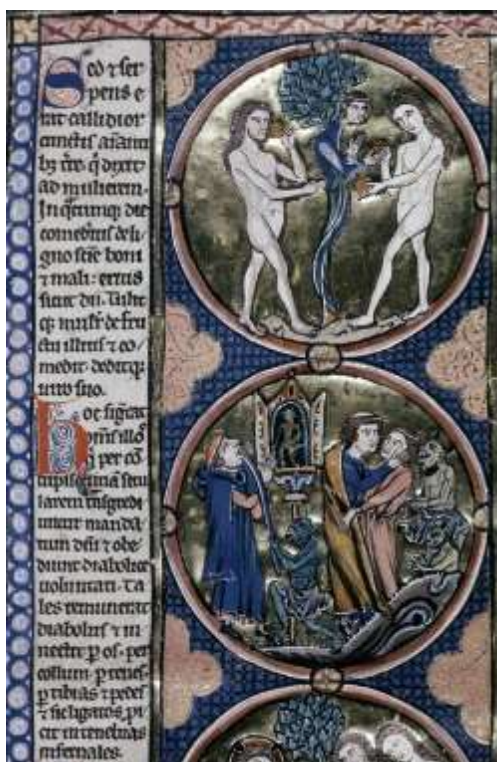 Sed ⁊ ser
pens e
rat callidior
cunctis aīanti
bꝫ tr̄e. q̄ dixit
ad mulierem.
In q̄cumqꝫ die
comederitis de li
gno sc̄ie boni
⁊ mali: eritis
sicut dii. Tulit
qꝫ mulr̄ de fru
ctu illius ⁊ co
medit. deditqꝫ
uiro suo.
hoc siḡcat
om̄s illos
q̄ per cō
cupiscentiā secu
larem transgredi
untur manda
tum dei ⁊ obe
diunt diabolice
uoluntati. Ta
les remunerat
diabolus ⁊ in
nectit ꝑ os. per
collum. ꝑ renes.
ꝑ tibias ⁊ pedes
⁊ sic ligatos ꝓi
cit in tenebras
infernales.